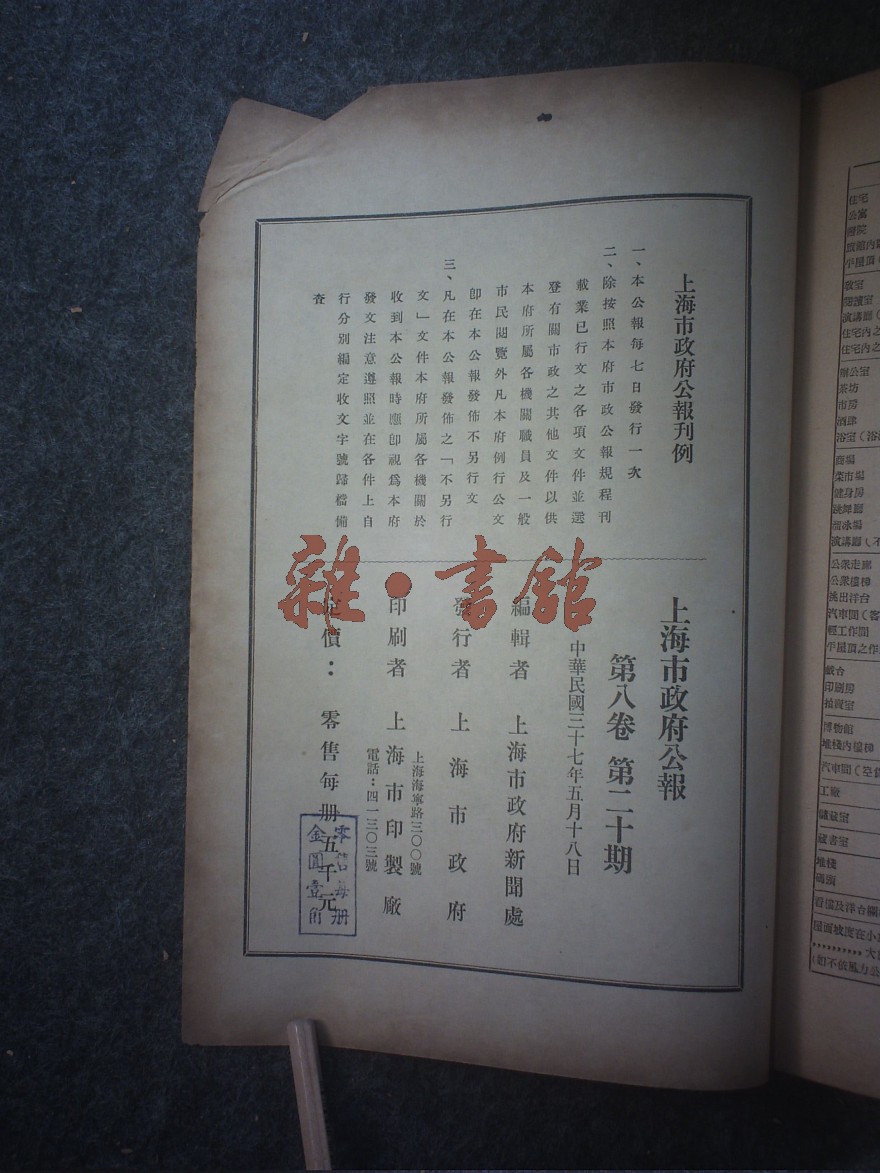 上海市政府公報刊例
一、本公報每七日發行一次
二、除按照本府市政公報規程刊
載業已行文之各項文件並選
登有關市政之其他文件以供
本府所屬各機關職員及一般
市民閱覽外凡本府例行公文
卽在本公報發佈不另行文
三、凡在本公報發佈之「不另行
文」文件本府所屬各機關於
收到本公報時應卽視爲本府
發文注意遵照並在各件上自
行分別編定收文字號歸檔備
查
上海市政府公報
第八卷 第二十期
中華民國三十七年五月十八日
編輯者 上海市政府新聞處
發行者 上海市政府
印刷者 上海市印製廠
上海海寧路三〇〇號
電話：四一三〇三號
定價： 零售每册五千元
零售每册
金圓壹角
雜·書館
住宅
公寓
醫院
教室
住宅內之
住宅內之
辦公室
茶坊
市房
酒館
浴室
商場
菜市場
健身房
跳舞廳
溜冰場
演講廳
公衆走廊
公衆樓梯
挑出洋台
汽車間
輕工作間
平屋頂之作
戲台
印刷房
拍賣室
博物館
堆棧內樓梯
汽車間
工廠
儲藏室
藏書室
堆棧
碼頭
看樓及洋台欄
屋面坡度在小